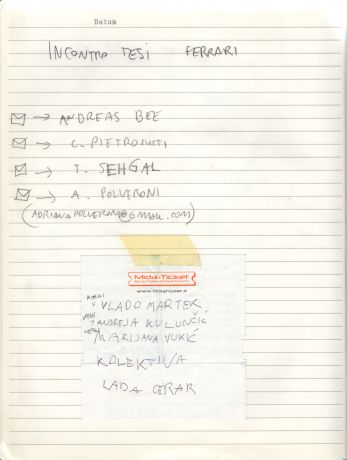 Datum
INCONTRO TESI FERRARI
→ ANDREAS BEE
→ C. PIETROIUSTI
→ T. SEHGAL
→ A. POLVERONI
(ADRIANAPOLVERONI@GMAIL.COM)
Mida-Ticket
www.midaticket.it
VLADO MARTEK
ANDREJA KULUNČIĆ
MARIJANA VUKIĆ
KOLEKTIVA
LADA CERAR